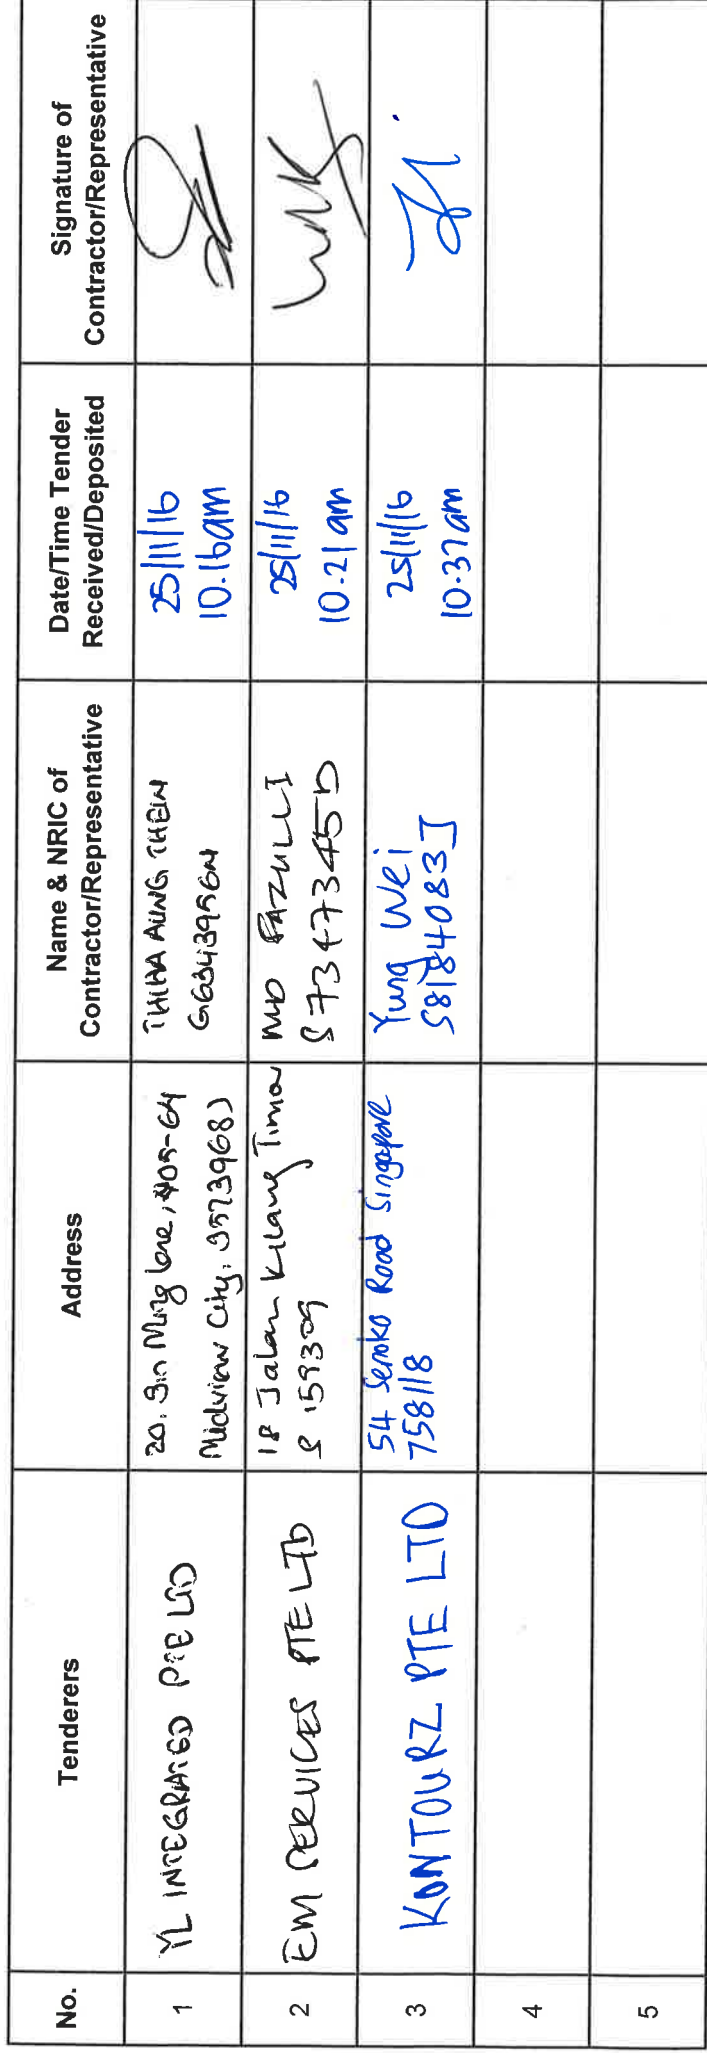 No.
Tenderers
Address
Name & NRIC of
Contractor/Representative
Date/Time Tender
Received/Deposited
Signature of
Contractor/Representative
1
YL INTEGRATED PTE LTD
20, Sin Ming Lane, #05-64
Midview City, S573968)
THIHA AUNG THEIN
G6343956N
25/11/16
10.16am
2
EM SERVICES PTE LTD
18 Jalan Kilang Timor
S 159309
MD FAZULLI
S7347345D
25/11/16
10.21am
3
KONTOURZ PTE LTD
54 Senoko Road Singapore
758118
Yung Wei
S8184083J
25/11/16
10.37am
4
5